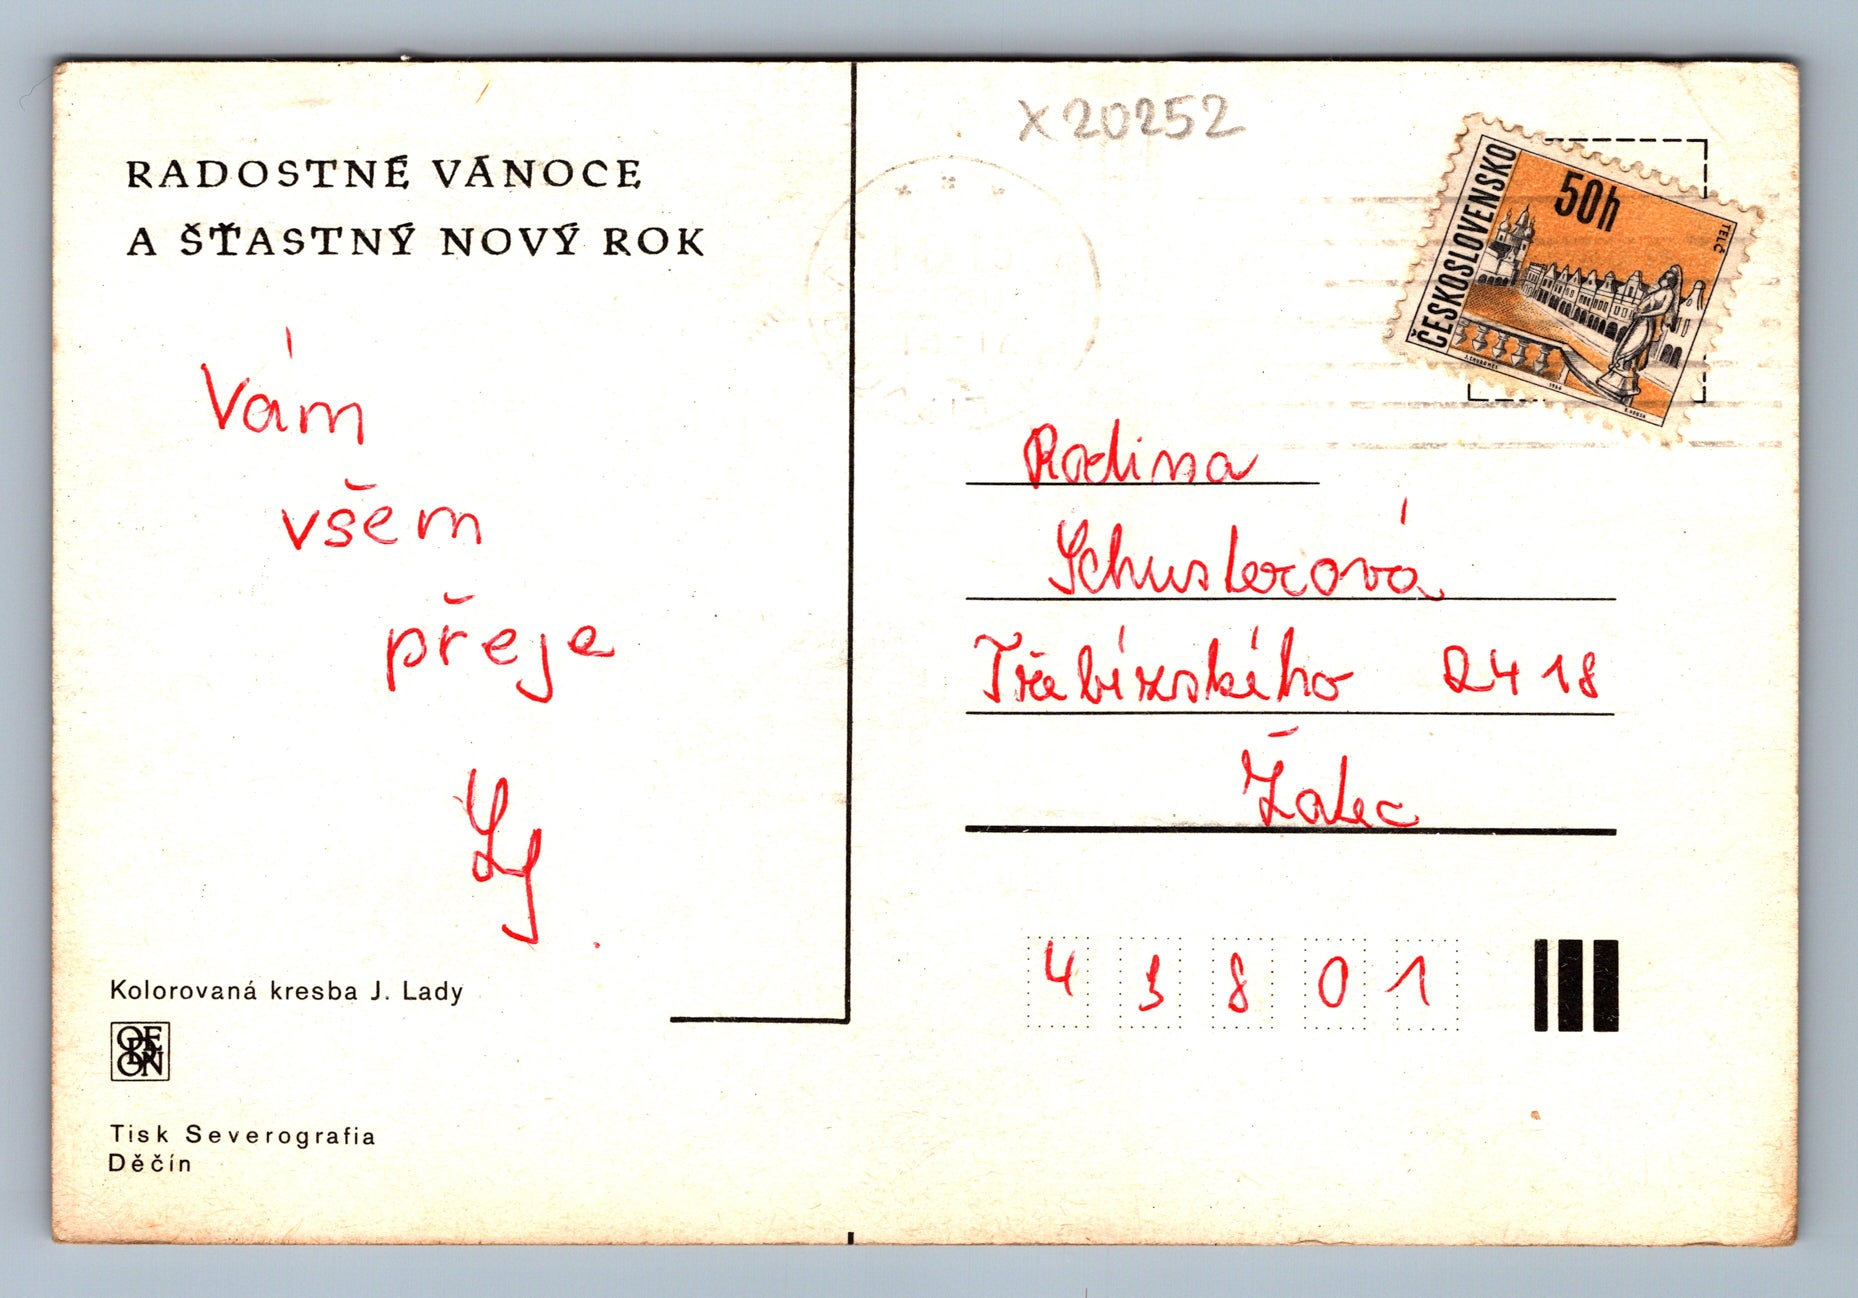 RADOSTNÉ VÁNOCE
A ŠŤASTNÝ NOVÝ ROK
Vám
všem
přeje
Kolorovaná kresba J. Lady
ODEON
Tisk Severografia
Děčín
X 20252
ČESKOSLOVENSKO
50h
TELČ
Rodina
Schusterová
Třebízského 2418
Žatec
43801